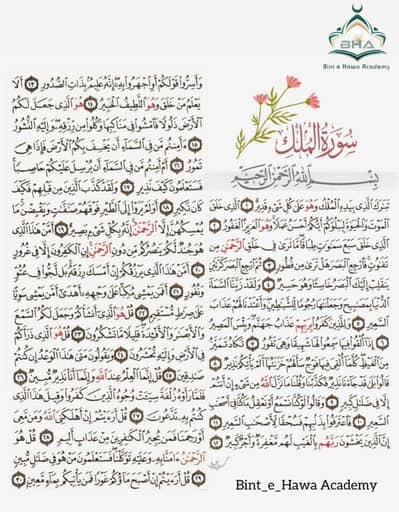 BHA
Bint e Hawa Academy
سُورَةُ الْمُلْك
بِسْمِ اللَّهِ الرَّحْمَٰنِ الرَّحِيمِ
تَبَٰرَكَ الَّذِي بِيَدِهِ الْمُلْكُ وَهُوَ عَلَىٰ كُلِّ شَيْءٍ قَدِيرٌ ١ الَّذِي خَلَقَ
الْمَوْتَ وَالْحَيَوٰةَ لِيَبْلُوَكُمْ أَيُّكُمْ أَحْسَنُ عَمَلًا وَهُوَ الْعَزِيزُ الْغَفُورُ ٢
الَّذِي خَلَقَ سَبْعَ سَمَٰوَٰتٍ طِبَاقًا مَا تَرَىٰ فِي خَلْقِ الرَّحْمَٰنِ مِنْ
تَفَٰوُتٍ فَارْجِعِ الْبَصَرَ هَلْ تَرَىٰ مِنْ فُطُورٍ ٣ ثُمَّ ارْجِعِ الْبَصَرَ كَرَّتَيْنِ
يَنْقَلِبْ إِلَيْكَ الْبَصَرُ خَاسِئًا وَهُوَ حَسِيرٌ ٤ وَلَقَدْ زَيَّنَّا السَّمَاءَ
الدُّنْيَا بِمَصَٰبِيحَ وَجَعَلْنَٰهَا رُجُومًا لِلشَّيَٰطِينِ وَأَعْتَدْنَا لَهُمْ عَذَابَ
السَّعِيرِ ٥ وَلِلَّذِينَ كَفَرُوا بِرَبِّهِمْ عَذَابُ جَهَنَّمَ وَبِئْسَ الْمَصِيرُ
٦ إِذَا أُلْقُوا فِيهَا سَمِعُوا لَهَا شَهِيقًا وَهِيَ تَفُورُ ٧ تَكَادُ تَمَيَّزُ
مِنَ الْغَيْظِ كُلَّمَا أُلْقِيَ فِيهَا فَوْجٌ سَأَلَهُمْ خَزَنَتُهَا أَلَمْ يَأْتِكُمْ نَذِيرٌ ٨
قَالُوا بَلَىٰ قَدْ جَاءَنَا نَذِيرٌ فَكَذَّبْنَا وَقُلْنَا مَا نَزَّلَ اللَّهُ مِنْ شَيْءٍ إِنْ أَنْتُمْ
إِلَّا فِي ضَلَٰلٍ كَبِيرٍ ٩ وَقَالُوا لَوْ كُنَّا نَسْمَعُ أَوْ نَعْقِلُ مَا كُنَّا فِي أَصْحَٰبِ
السَّعِيرِ ١٠ فَاعْتَرَفُوا بِذَنْبِهِمْ فَسُحْقًا لِأَصْحَٰبِ السَّعِيرِ ١١
إِنَّ الَّذِينَ يَخْشَوْنَ رَبَّهُمْ بِالْغَيْبِ لَهُمْ مَغْفِرَةٌ وَأَجْرٌ كَبِيرٌ ١٢
وَأَسِرُّوا قَوْلَكُمْ أَوِ اجْهَرُوا بِهِ إِنَّهُ عَلِيمٌ بِذَاتِ الصُّدُورِ ١٣ أَلَا
يَعْلَمُ مَنْ خَلَقَ وَهُوَ اللَّطِيفُ الْخَبِيرُ ١٤ هُوَ الَّذِي جَعَلَ لَكُمُ
الْأَرْضَ ذَلُولًا فَامْشُوا فِي مَنَاكِبِهَا وَكُلُوا مِنْ رِزْقِهِ وَإِلَيْهِ النُّشُورُ
١٥ ءَأَمِنْتُمْ مَنْ فِي السَّمَاءِ أَنْ يَخْسِفَ بِكُمُ الْأَرْضَ فَإِذَا هِيَ
تَمُورُ ١٦ أَمْ أَمِنْتُمْ مَنْ فِي السَّمَاءِ أَنْ يُرْسِلَ عَلَيْكُمْ حَاصِبًا
فَسَتَعْلَمُونَ كَيْفَ نَذِيرِ ١٧ وَلَقَدْ كَذَّبَ الَّذِينَ مِنْ قَبْلِهِمْ فَكَيْفَ
كَانَ نَكِيرِ ١٨ أَوَلَمْ يَرَوْا إِلَى الطَّيْرِ فَوْقَهُمْ صَٰفَّٰتٍ وَيَقْبِضْنَ مَا
يُمْسِكُهُنَّ إِلَّا الرَّحْمَٰنُ إِنَّهُ بِكُلِّ شَيْءٍ بَصِيرٌ ١٩ أَمَّنْ هَٰذَا الَّذِي
هُوَ جُنْدٌ لَكُمْ يَنْصُرُكُمْ مِنْ دُونِ الرَّحْمَٰنِ إِنِ الْكَٰفِرُونَ إِلَّا فِي غُرُورٍ
٢٠ أَمَّنْ هَٰذَا الَّذِي يَرْزُقُكُمْ إِنْ أَمْسَكَ رِزْقَهُ بَلْ لَجُّوا فِي عُتُوٍّ
وَنُفُورٍ ٢١ أَفَمَنْ يَمْشِي مُكِبًّا عَلَىٰ وَجْهِهِ أَهْدَىٰ أَمَّنْ يَمْشِي سَوِيًّا
عَلَىٰ صِرَٰطٍ مُسْتَقِيمٍ ٢٢ قُلْ هُوَ الَّذِي أَنْشَأَكُمْ وَجَعَلَ لَكُمُ السَّمْعَ
وَالْأَبْصَٰرَ وَالْأَفْئِدَةَ قَلِيلًا مَا تَشْكُرُونَ ٢٣ قُلْ هُوَ الَّذِي ذَرَأَكُمْ
فِي الْأَرْضِ وَإِلَيْهِ تُحْشَرُونَ ٢٤ وَيَقُولُونَ مَتَىٰ هَٰذَا الْوَعْدُ إِنْ كُنْتُمْ
صَٰدِقِينَ ٢٥ قُلْ إِنَّمَا الْعِلْمُ عِنْدَ اللَّهِ وَإِنَّمَا أَنَا نَذِيرٌ مُبِينٌ ٢٦
فَلَمَّا رَأَوْهُ زُلْفَةً سِيئَتْ وُجُوهُ الَّذِينَ كَفَرُوا وَقِيلَ هَٰذَا الَّذِي
كُنْتُمْ بِهِ تَدَّعُونَ ٢٧ قُلْ أَرَءَيْتُمْ إِنْ أَهْلَكَنِيَ اللَّهُ وَمَنْ مَعِيَ
أَوْ رَحِمَنَا فَمَنْ يُجِيرُ الْكَٰفِرِينَ مِنْ عَذَابٍ أَلِيمٍ ٢٨ قُلْ هُوَ
الرَّحْمَٰنُ ءَامَنَّا بِهِ وَعَلَيْهِ تَوَكَّلْنَا فَسَتَعْلَمُونَ مَنْ هُوَ فِي ضَلَٰلٍ مُبِينٍ
٢٩ قُلْ أَرَءَيْتُمْ إِنْ أَصْبَحَ مَاؤُكُمْ غَوْرًا فَمَنْ يَأْتِيكُمْ بِمَاءٍ مَعِينٍ ٣٠
Bint_e_Hawa Academy